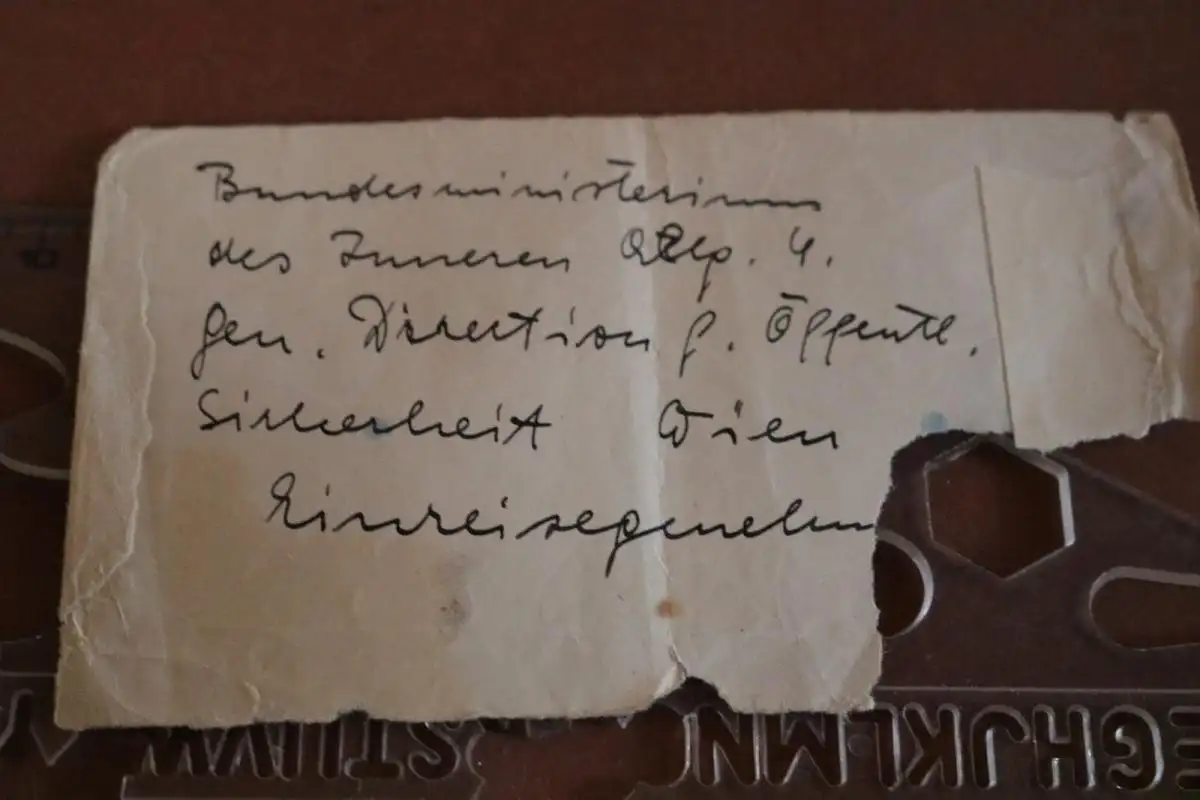 Bundesministerium
des Inneren 4.
Gen. Direction f. Öffentl.
Sicherheit Wien
Einreisegenehm
STUVW
GHJKLMN